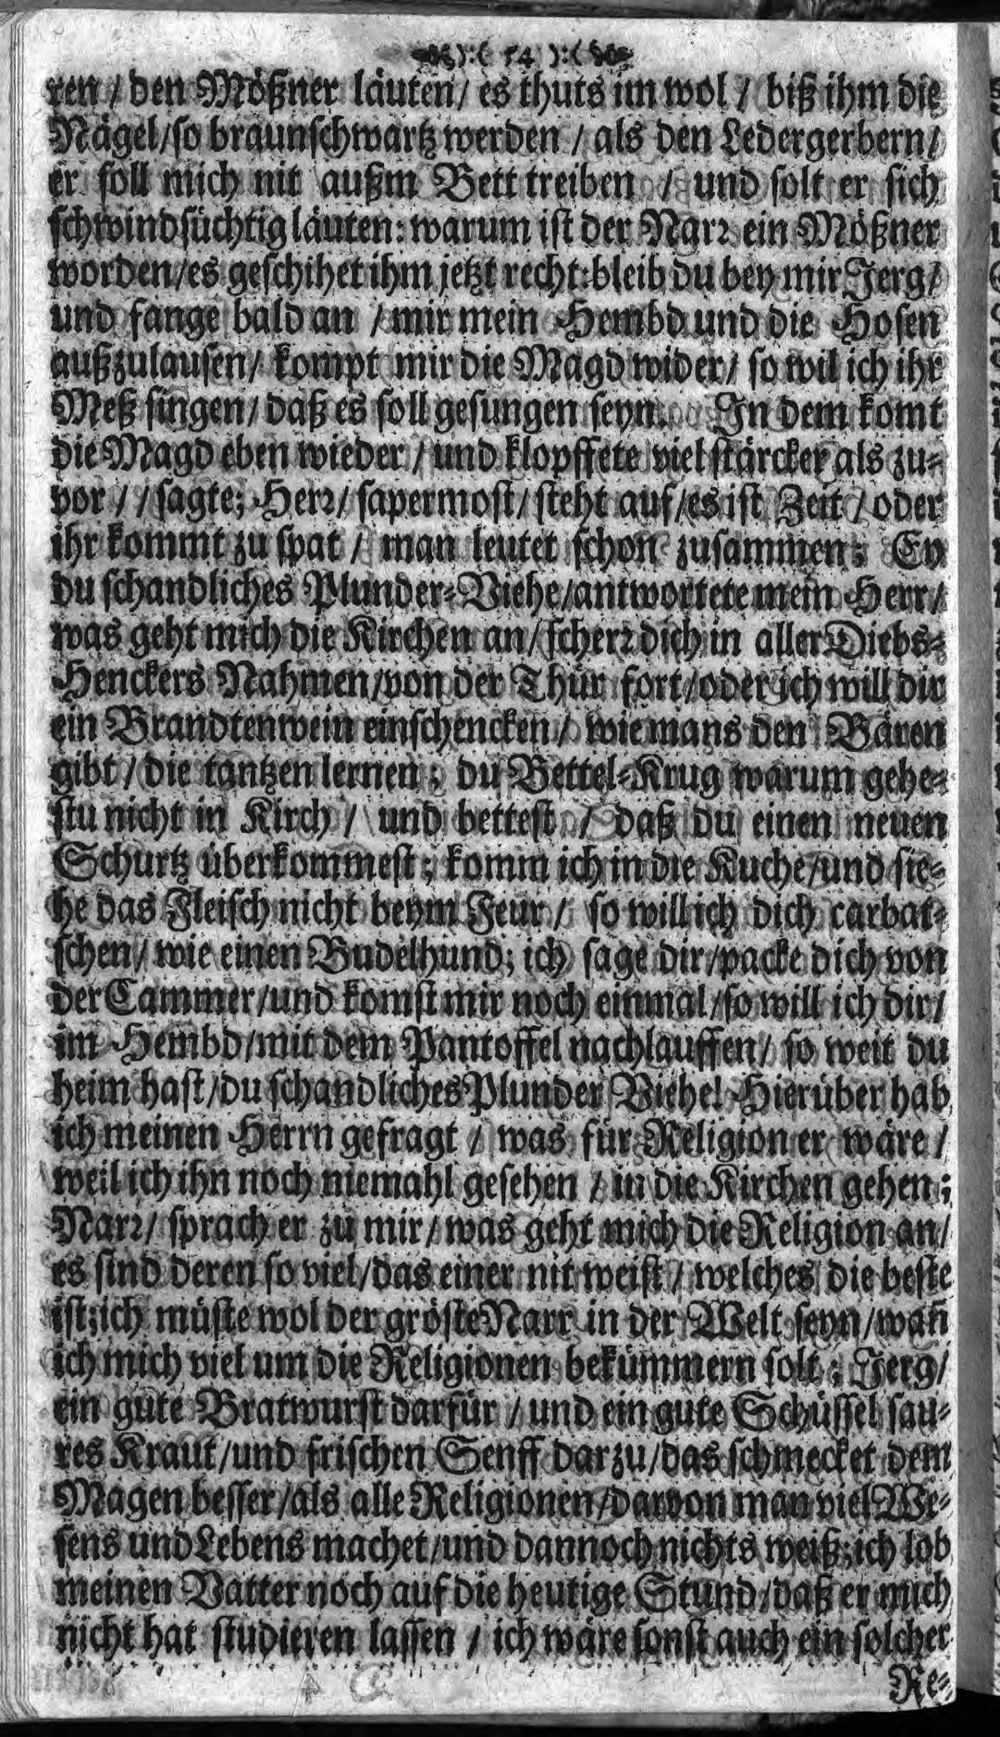 ):( 54 ):(
ren / den Mößner läuten / es thuts im wol / biß ihm die
Nägel / so braunschwartz werden / als den Ledergerbern /
er soll mich nit außm Bett treiben / und solt er sich
schwindsüchtig läuten: warum ist der Narr ein Mößner
worden / es geschihet ihm jetzt recht: bleib du bey mir Jerg /
und fange bald an / mir mein Hembd und die Hosen
außzulausen / kompt mir die Magd wider / so wil ich ihr
Meß singen / daß es soll gesungen seyn. In dem komt
die Magd eben wieder / und klopffete viel stärcker als zu-
vor / / sagte; Herr / sapermost / steht auf / es ist Zeit / oder
ihr kommt zu spat / man leutet schon zusammen; Ey
du schandliches Plunder-Viehe / antwortete mein Herr /
was geht mich die Kirchen an / scherr dich in aller Diebs-
Henckers Nahmen / von der Thür fort / oder ich will dir
ein Brandtenwein einschencken / wie mans den Bären
gibt / die tantzen lernen; du Bettel-Krug warum gehe-
stu nicht in Kirch / und bettest / daß du einen neuen
Schurtz überkommest; komm ich in die Kuche / und sie-
he das Fleisch nicht beym Feur / so will ich dich carbat-
schen / wie einen Budelhund; ich sage dir / packe dich von
der Cammer / und komst mir noch einmal / so will ich dir /
im Hembd / mit dem Pantoffel nachlauffen / so weit du
heim hast / du schandliches Plunder Viehe! Hierüber hab
ich meinen Herrn gefragt / was für Religion er wäre /
weil ich ihn noch niemahl gesehen / in die Kirchen gehen;
Narr / sprach er zu mir / was geht mich die Religion an /
es sind deren so viel / das einer nit weist / welches die beste
ist; ich müste wol der gröste Narr in der Welt seyn / wañ
ich mich viel um die Religionen bekümmern solt; Jerg /
ein gute Bratwurst darfür / und ein gute Schüssel sau-
res Kraut / und frischen Senff darzu / das schmecket dem
Magen besser / als alle Religionen / darvon man viel We-
sens und Lebens machet / und dannoch nichts weiß; ich lob
meinen Vatter noch auf die heutige Stund / daß er mich
nicht hat studieren lassen / ich wäre sonst auch ein solcher
Re-